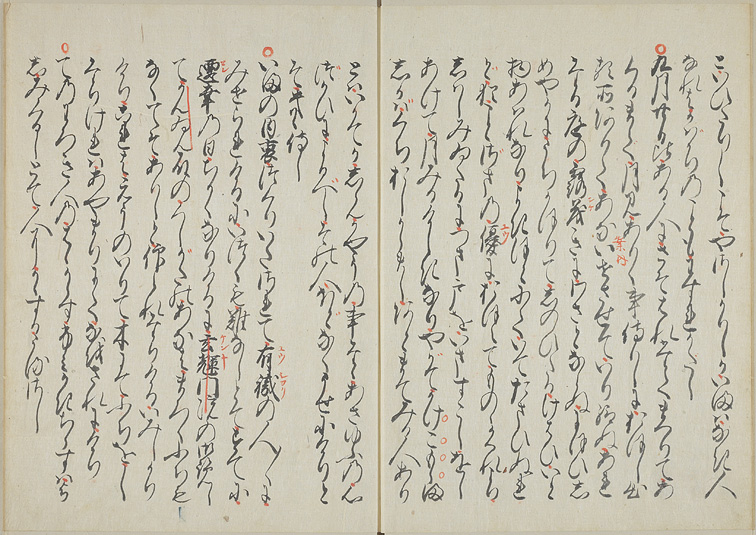 といひたりしこそをかしかりしか今はなき人
なれはかはかりのこともわすれかたし
九月廿日比ある人にさそはれたてまつりてあ
くるまて月見ありく事侍しにおほし出
る所ありてあないせさせていり給ぬあれ
たる庭の露茂きにわさとならぬにほひし
めやかにうちかほりてしのひたるけはひいと
物あはれなりよきほとにていてたまひぬれ
と猶ことさまの優におほえてものゝかくれよ
りしはしみゐたるにつま戸をいますこしをし
あけて月みるけしきなりやかてかけこもらま
しかはくちおしからましあとまてみる人あり
とはいかてかしらんかやうの事はたゝあさゆふの心
つかひによるへしその人ほとなくうせにけりと
きゝ侍し
いまの内裏つくりいたされて有職の人〻に
みせられけるにいつくも難なしとてすてに
遷幸の日ちかくなりけるに玄輝門院の御覧し
てかんゐん殿のくしかたのあなはまろくふちも
なくてそありしと仰られけるいみしかり
けりこれはえうのいりて木にてふちをし
たりけれはあやまりにてなをされにけり
てのわろき人のはゝからす文かきちらすはよ
しみくるしとて人にかゝするはうるさし